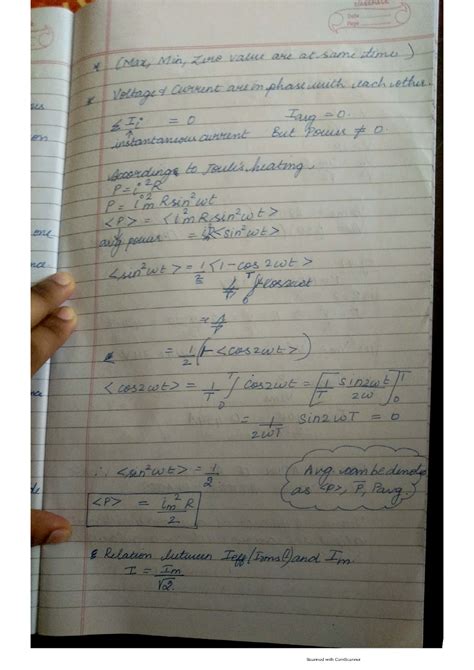 Date
Page
* (Max, Min, Zero value are at same time)
* Voltage & Current are in phase with each other.
≤ Ii = 0 Iavg = 0.
↑
instantaneous current But Power ≠ 0.
According to Joule's heating,
P = i²R
P = im² R sin²wt
<P> = <im² R sin²wt>
avg power. = i²R <sin²wt>
<sin²wt> = 1/2 <1 - cos2wt>
= 1/2 (1 - <cos2wt>)
<cos2wt> = 1/T ∫₀ᵀ cos2wt = [1/T sin2wt/2w]₀ᵀ
= 1/2wT sin2wT = 0
∴ <sin²wt> = 1/2
Avg can be denote
as <P>, P̄, Pavg.
<P> = im² R/2
Relation between Ieff (Irms) and Im.
I = Im/√2
Scanned with CamScanner